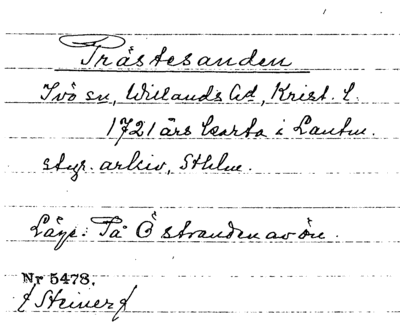 Pråstesanden
Ivö sn, Willands hd, Krist. l.
1721 års karta i Lantm.
styr. arkiv, Sthlm.
Läge: På Östranden av ön.
Nr 5478.